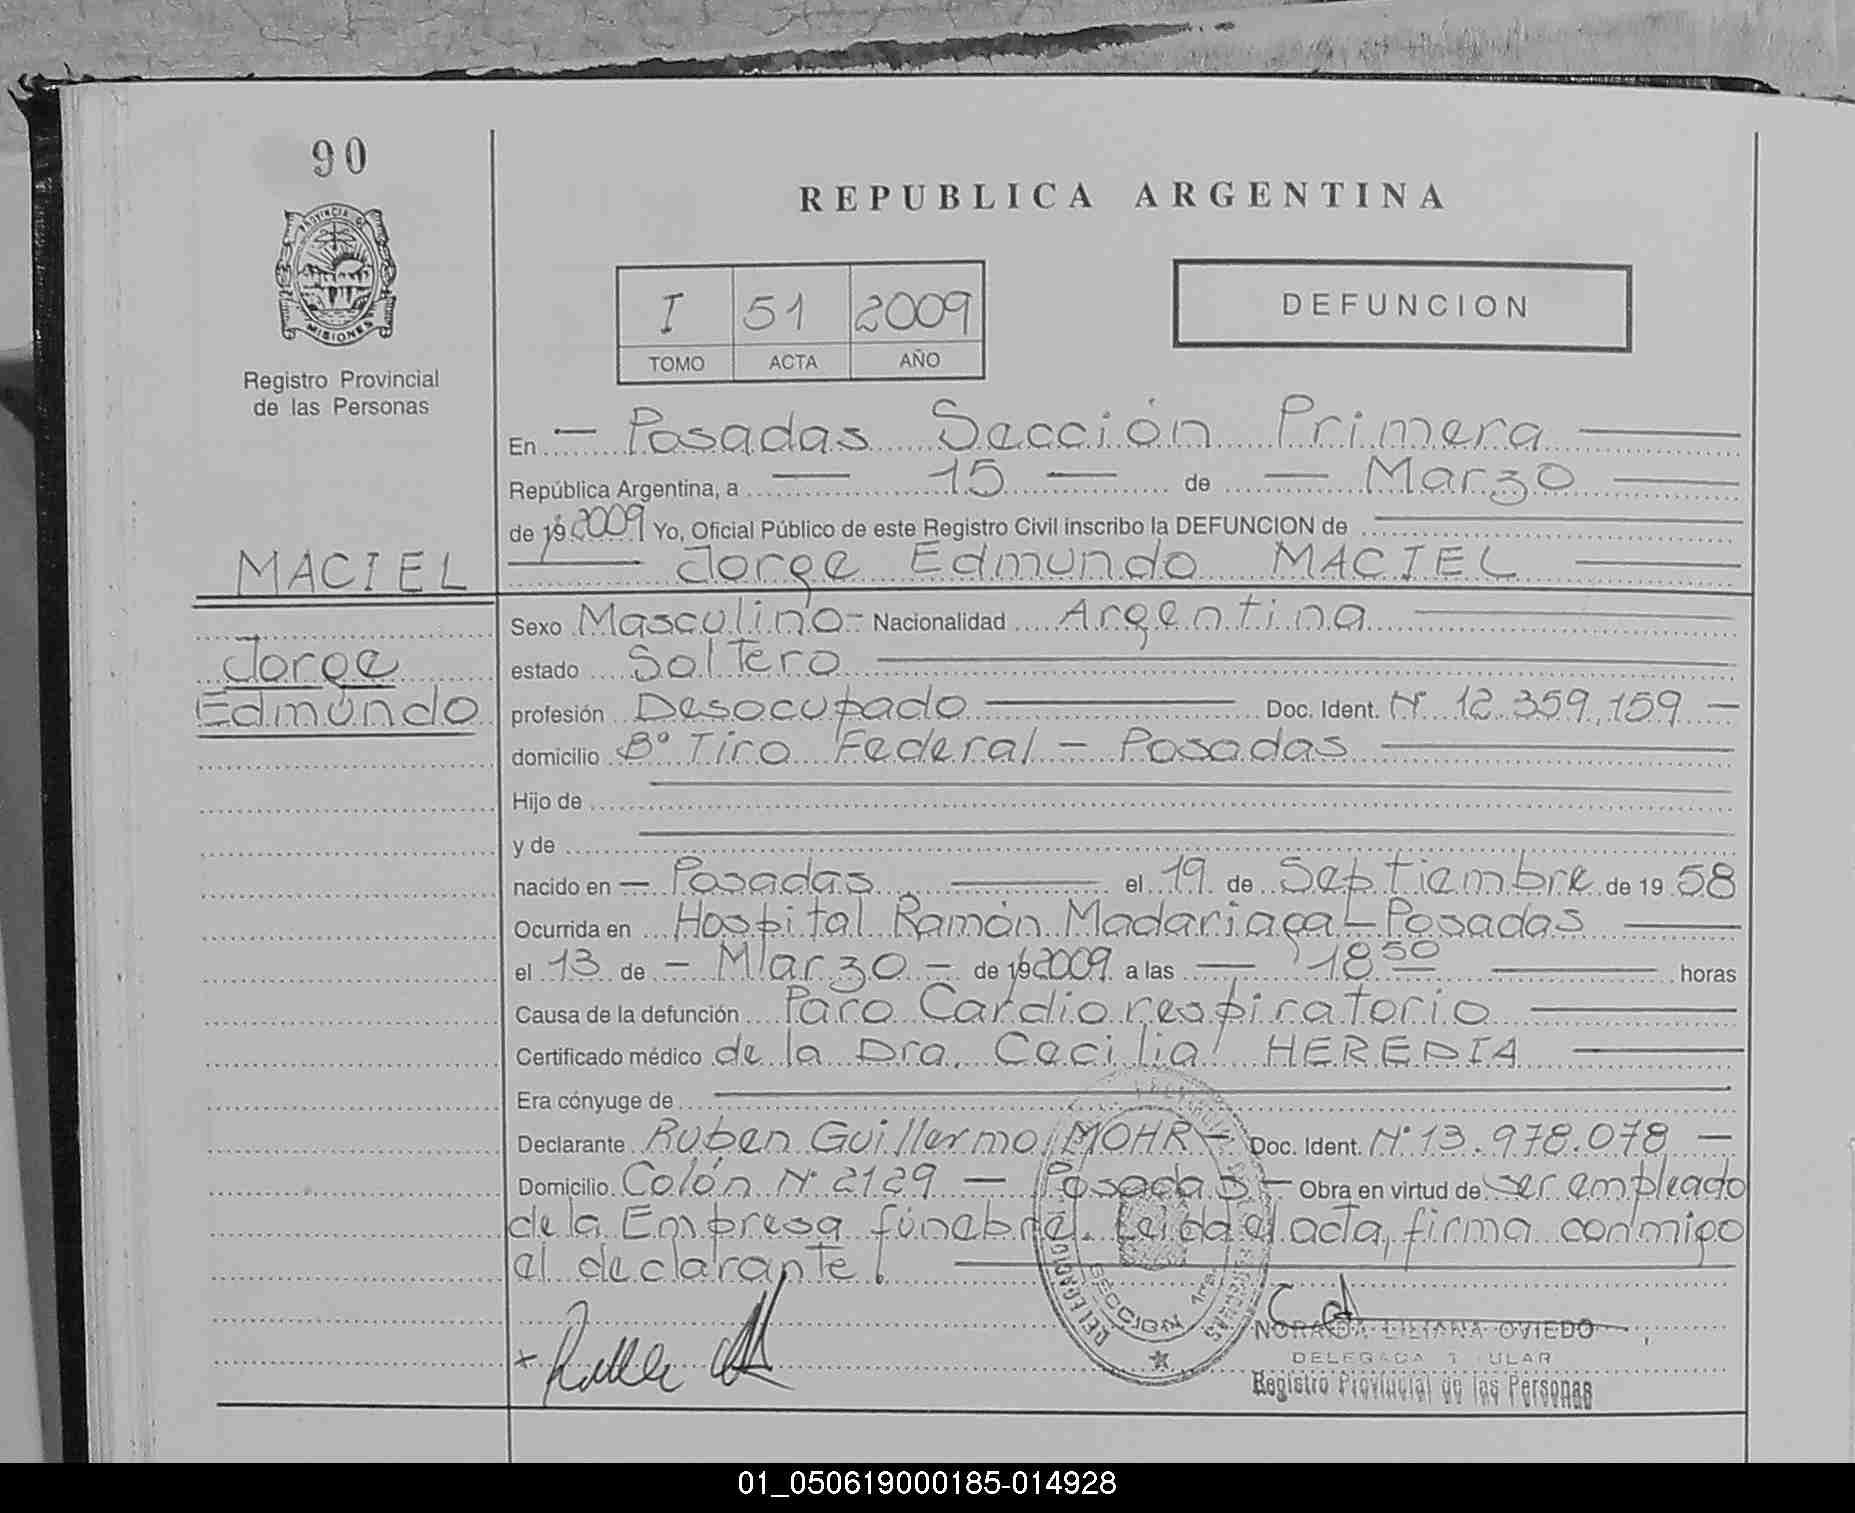 90
PROVINCIA DE
MISIONES
Registro Provincial
de las Personas
REPUBLICA ARGENTINA
I 51 2009
TOMO ACTA AÑO
DEFUNCION
En — Posadas Sección Primera
República Argentina, a — 15 — de — Marzo
de 19 2009 Yo, Oficial Público de este Registro Civil inscribo la DEFUNCION de
MACIEL
Jorge Edmundo MACIEL
Jorge
Edmundo
Sexo Masculino - Nacionalidad Argentina
estado Soltero
profesión Desocupado Doc. Ident. Nº 12.359.159 —
domicilio Bº Tiro Federal - Posadas
Hijo de
y de
nacido en — Posadas el 19 de Septiembre de 19 58
Ocurrida en Hospital Ramón Madariaga - Posadas
el 13 de - Marzo - de 19 2009 a las — 18 50 horas
Causa de la defunción Paro Cardiorespiratorio
Certificado médico de la Dra. Cecilia HEREDIA
Era cónyuge de
Declarante Ruben Guillermo MOHR - Doc. Ident. Nº 13.978.078 —
Domicilio Colón Nº 2129 — Posadas - Obra en virtud de ser empleado
de la Empresa fúnebre. Leida el acta, firma conmigo
el declarante.
DELEGACION SECCION 1ra.
LILIANA OVIEDO
DELEGADA TITULAR
Registro Provincial de las Personas
01_050619000185-014928